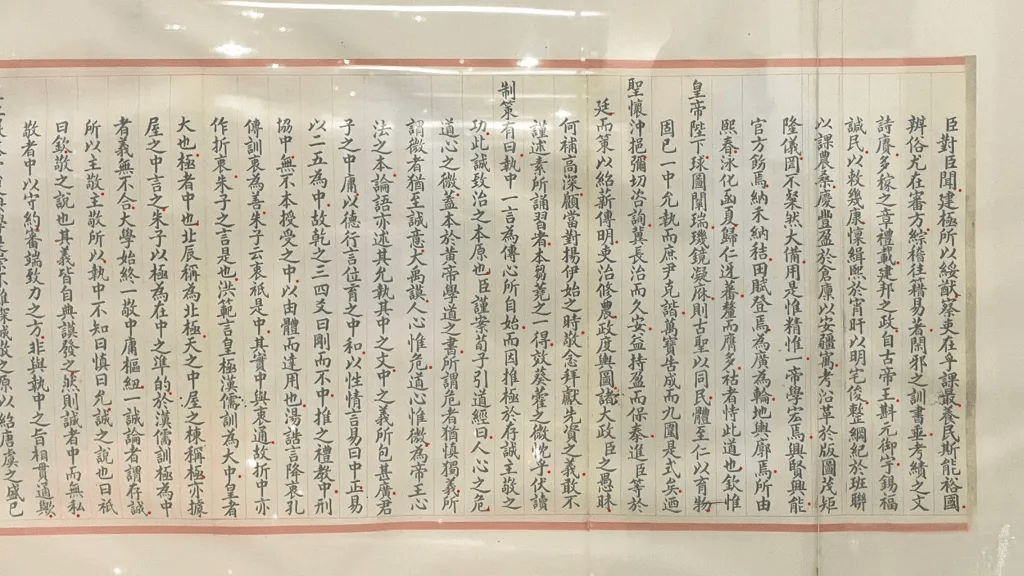 臣對臣聞建極所以綏猷察吏在乎課最養民斯能裕國
辨俗尤在審方綜稽往籍易著閑邪之訓書垂考績之文
詩賡多稼之章禮載建邦之政自古帝王斟元御宇錫福
誠民以敕幾康懷緝熙於宵旰以明宅俊整綱紀於班聯
以課農桑慶豐盈於倉廩以安疆宇考沿革於版圖茂矩
隆儀罔不粲然大備用是惟精惟一帝學宏焉興賢興能
官方飭焉納禾納秸田賦登焉為廣為輪地輿廓焉所由
熙春泳化函夏歸仁迓蕃釐而膺多祜者恃此道也欽惟
皇帝陛下球圖闡瑞璣鏡凝庥則古聖以同民體至仁以育物
固已一中允執而庶尹克諧萬寶告成而九圍是式矣迺
聖懷沖挹彌切咨詢冀長治而久安益持盈而保泰進臣等於
廷而策以紹薪傳明吏治修農政度輿圖諸大政臣之愚昧
何補高深顧當對揚伊始之時敬念拜獻先資之義敢不
謹述素所誦習者本芻蕘之一得效葵藿之微忱乎伏讀
制策有曰執中一言為傳心所自始而因推極於存誠主敬之
功此誠致治之本原也臣謹案荀子引道經曰人心之危
道心之微蓋本於黃帝學道之書所謂危者猶慎獨義所
謂微者猶至誠意大禹謨人心惟危道心惟微為帝王心
法之本論語亦述其允執其中之文中之義所包甚廣君
子之中庸以德行言位育之中和以性情言易曰中正易
以二五為中故乾之三四爻曰剛而不中推之禮教中刑
協中無不本授受之中以由體而達用也湯誥言降衷孔
傳訓衷為善朱子云衷祇是中其實中與衷通故折中亦
作折衷朱子之言是也洪範言皇極漢儒訓為大中皇者
大也極者中也北辰稱為北極天之中屋之棟稱極亦據
屋之中言之朱子以極為在中之準的於漢儒訓極為中
者義無不合大學始終一敬中庸樞紐一誠論者謂存誠
所以主敬主敬所以執中不知曰慎曰允誠之說也曰祇
曰欽敬之說也其義皆自典謨發之然則誠者中而無私
敬者中以守約審端致力之方非與執中之旨相貫通歟